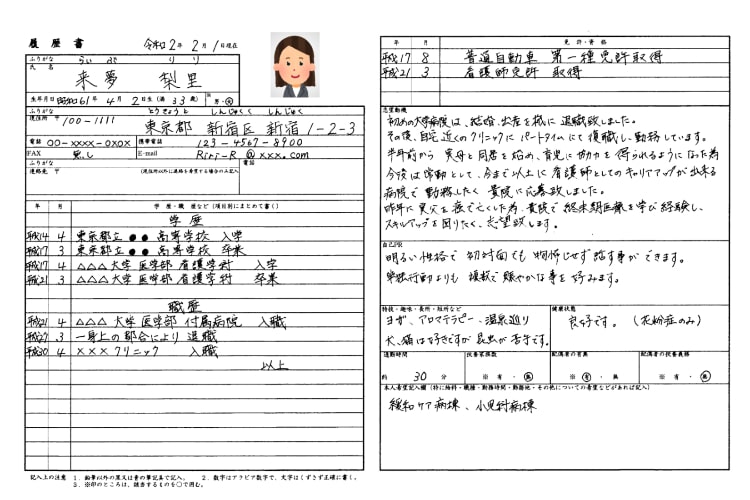 履歴書
令和2年 2月 1日現在
ふりがな らいむ りり
氏名 来夢 梨里
生年月日 昭和61年 4月 2日生(満 33歳) 男・女
ふりがな とうきょうと しんじゅくく しんじゅく
現住所 〒 100-1111
東京都 新宿区 新宿1-2-3
電話 00-xxxx-0x0x
携帯電話 123-4567-8900
FAX 無し
E-mail Riri-R @xxx.com
ふりがな
電話
連絡先 〒 (現住所以外に連絡を希望する場合のみ記入)
年 月 学歴・職歴など(項目別にまとめて書く)
学歴
平成14 4 東京都立●●高等学校 入学
平成17 3 東京都立●●高等学校 卒業
平成17 4 △△△大学 医学部 看護学科 入学
平成21 3 △△△大学 医学部 看護学科 卒業
職歴
平成21 4 △△△大学 医学部 付属病院 入職
平成27 3 一身上の都合により 退職
平成30 4 ×××クリニック 入職
以上
記入上の注意 1.鉛筆以外の黒又は青の筆記具で記入。 2.数字はアラビア数字で、文字はくずさず正確に書く。
3.※印のところは、該当するものを○で囲む。
年 月 免許・資格
平成17 8 普通自動車 第一種免許取得
平成21 3 看護師免許 取得
志望動機
初めの大学病院は、結婚、出産を機に退職致しました。
その後、自宅近くのクリニックにパートタイムにて復職し、勤務しています。
半年前から 実母と同居を始め、育児に協力を得られるようになった為
今後は常勤として、今まで以上に看護師としてのキャリアアップが出来る
病院で勤務したく 貴院に応募致しました。
昨年に実父を癌で亡くした為、貴院で終末期医療を学び経験し、
スキルアップを図りたく、志望致します。
自己PR
明るい性格で 初対面でも物怖じせず話す事ができます。
単独行動よりも 複数で賑やかな事を好みます。
特技・趣味・長所・短所など
ヨガ、アロマテラピー、温泉巡り
犬、猫は好きですが昆虫が苦手です。
健康状態
良好です。(花粉症のみ)
通勤時間 約 30分
扶養家族数
※ 有・無
配偶者の有無
※ 有・無
配偶者の扶養義務
※ 有・無
本人希望記入欄(特に給料・職種・勤務時間・勤務地・その他についての希望などがあれば記入)
緩和ケア病棟、小児科病棟